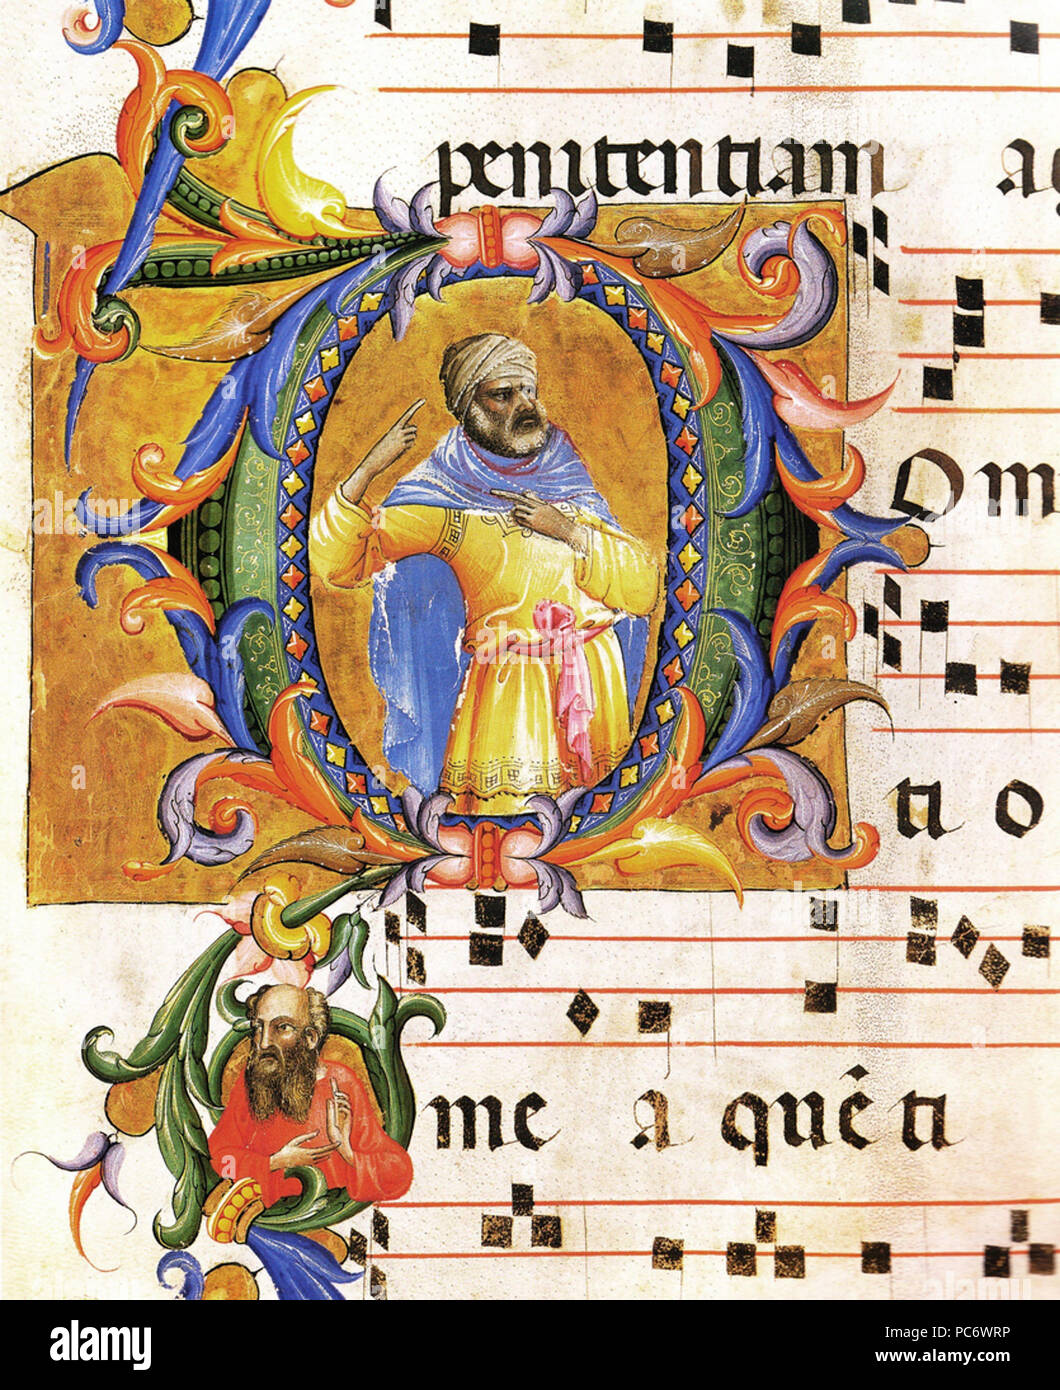 penitentiam
Om
ti o
me a quẽ ti
alamy
alamy
Image ID: PC6WRP
www.alamy.com